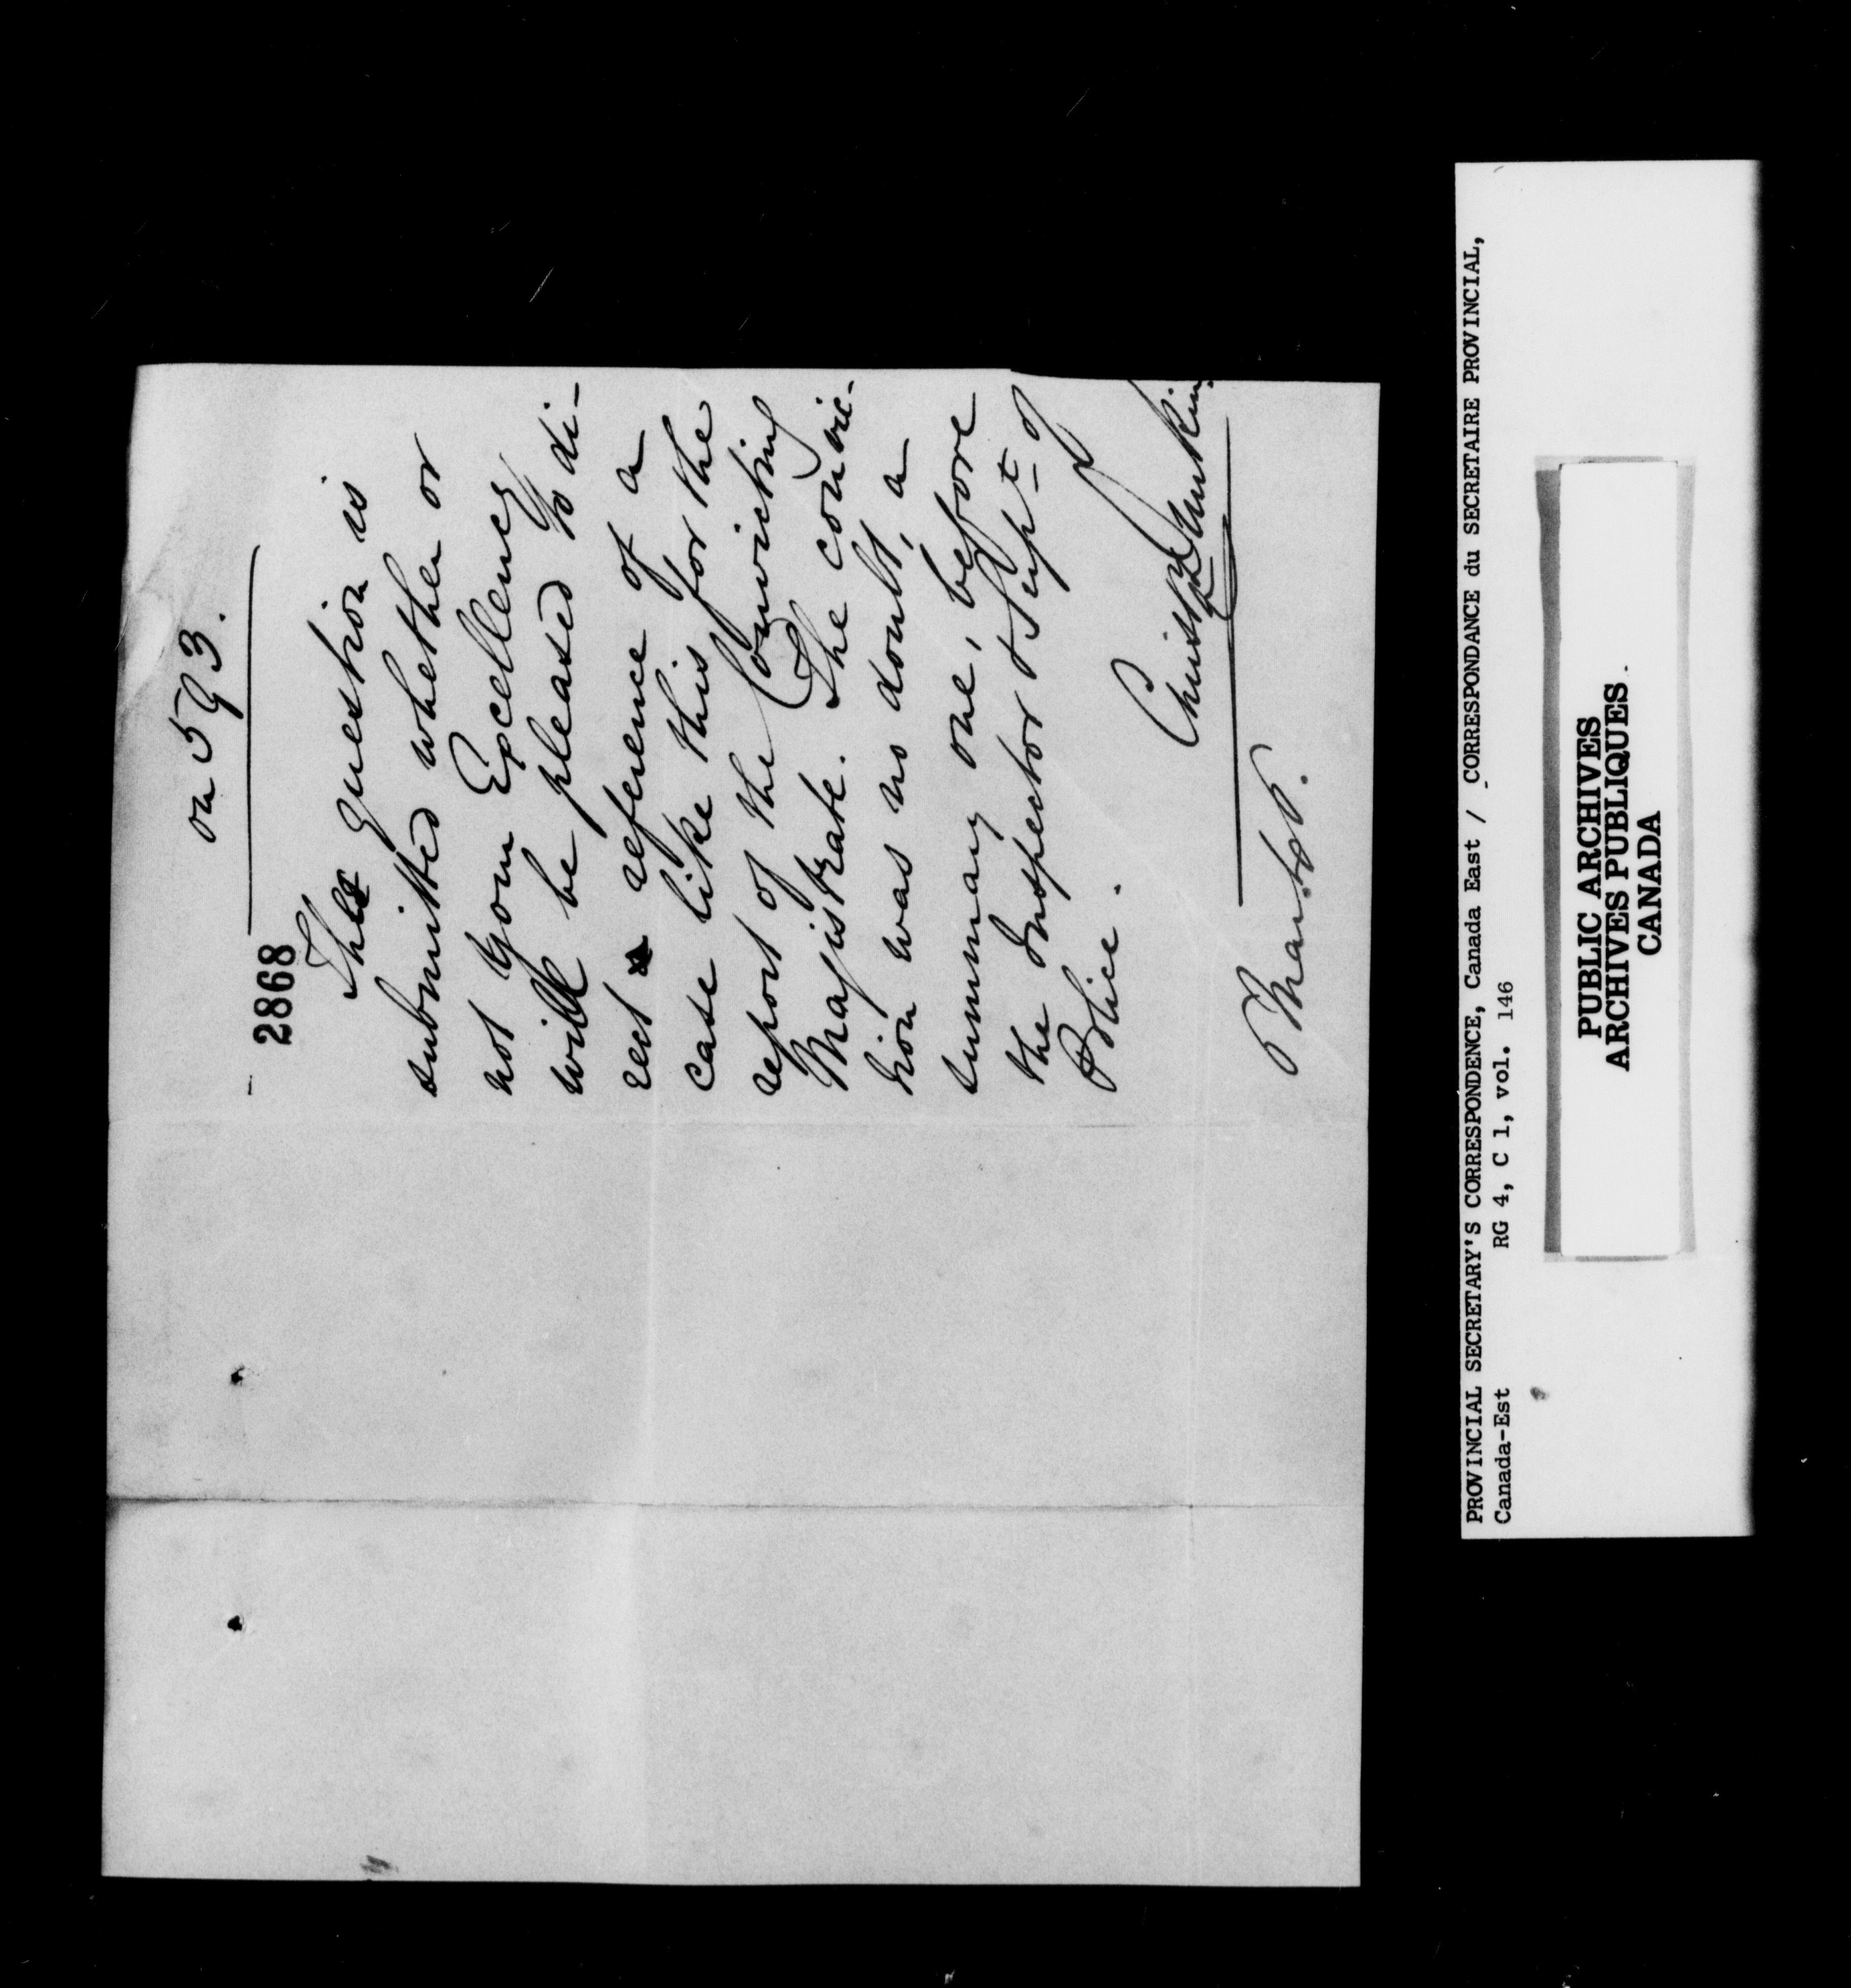 on 593.
2868
The question is
submitted whether or
not Your Excellency
will be pleased to di-
rect a reference of a
case like this for the
report of the Convicting
Magistrate. The convic-
tion was no doubt, a
summary one, before
the Inspector & Supt of
Police.
Christr Dunkin
PROVINCIAL SECRETARY'S CORRESPONDENCE, Canada East / CORRESPONDANCE du SECRETAIRE PROVINCIAL,
Canada-Est RG 4, C 1, vol. 146
PUBLIC ARCHIVES
ARCHIVES PUBLIQUES
CANADA